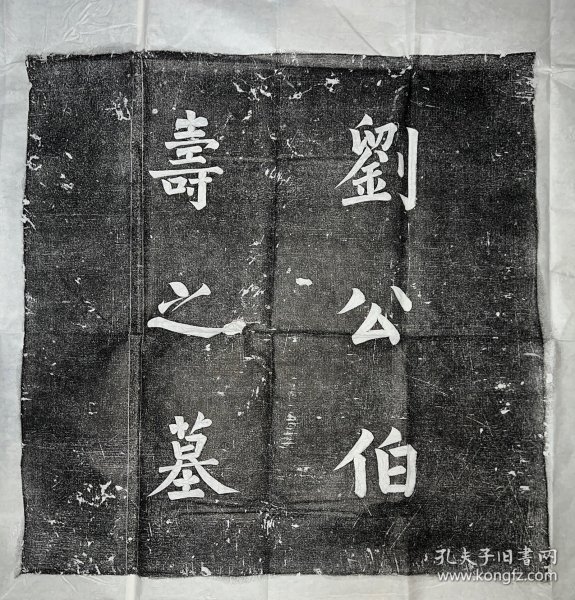 劉公伯
壽之墓
孔夫子旧书网
www.kongfz.com